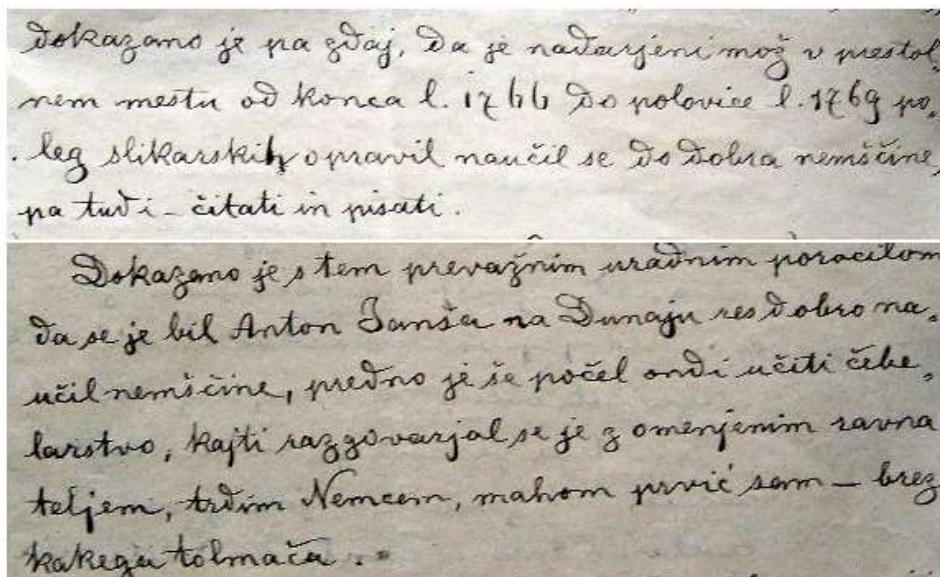 dokazano je pa zdaj, da je nadarjeni mož v prestol„
nem mestu od konca l. 1766 do polovice l. 1769 po„
leg slikarskih opravil naučil se do dobra nemščine,
pa tudi – čitati in pisati.
Dokazano je s tem prevažnim uradnim poročilom
da se je bil Anton Janša na Dunaju res dobro na„
učil nemščine, predno je še počel ondi učiti čebe„
larstvo, kajti razgovarjal se je z omenjenim ravna
teljem, trdim Nemcem, mahom prvič sam – brez
kakega tolmača."